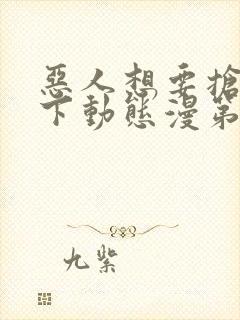 惡人想要搶
下動態漫第
九紫